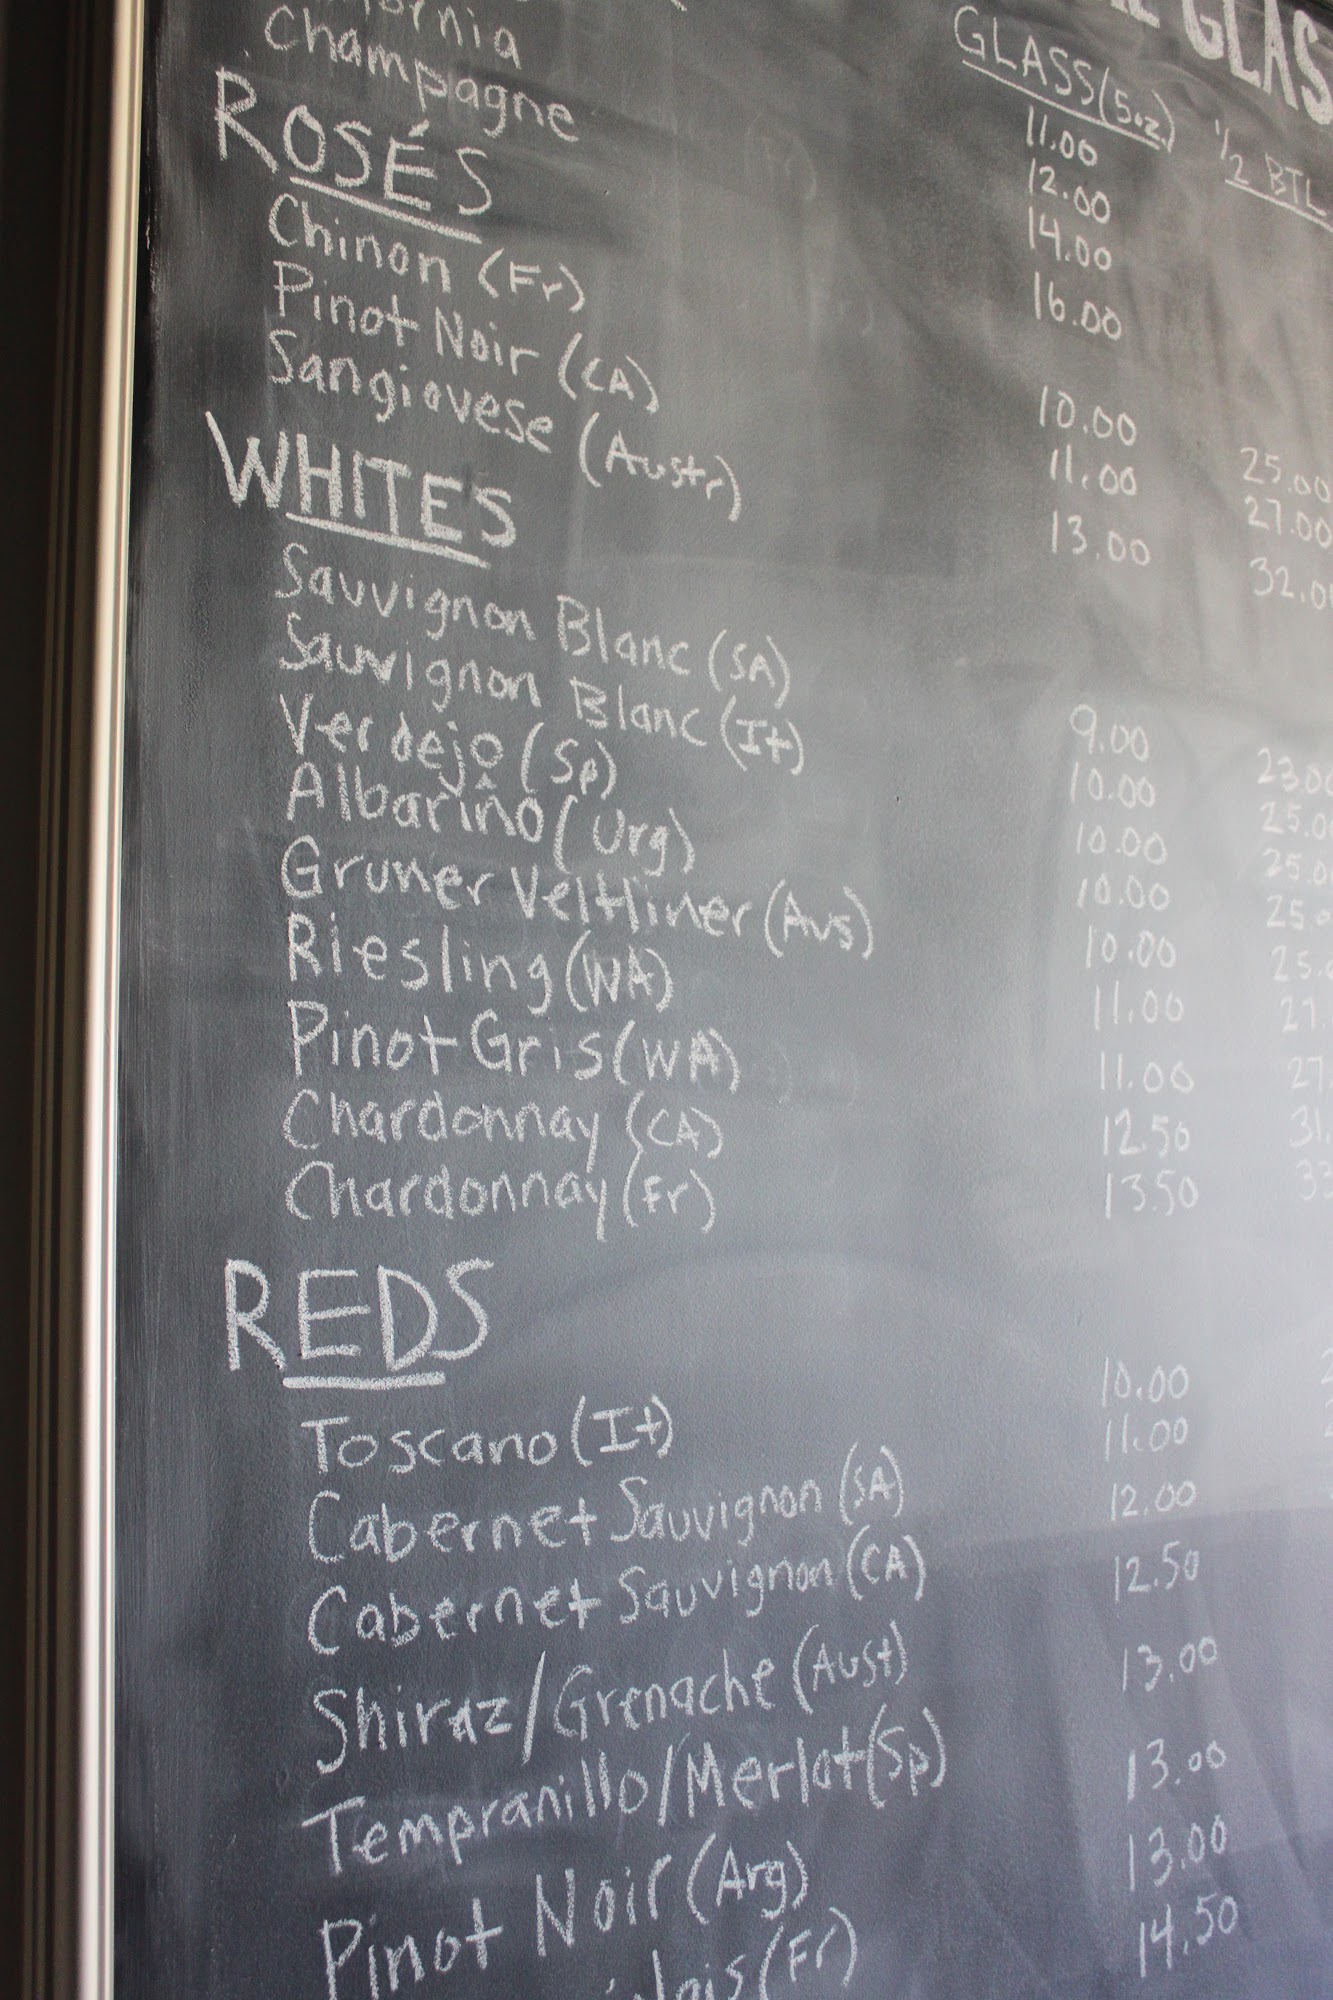 GLAS
GLASS(5oz.) 1/2 BTL
11.00
12.00
ornia 14.00
Champagne 16.00
ROSÉS
Chinon (Fr) 10.00 25.00
Pinot Noir (CA) 11.00 27.00
Sangiovese (Austr) 13.00 32.0
WHITES
Sauvignon Blanc (SA) 9.00 23.00
Sauvignon Blanc (It) 10.00 25.0
Verdejo (Sp) 10.00 25.0
Albariño (Urg) 10.00 25.
Gruner Veltliner (Aus) 10.00 25.
Riesling (WA) 11.00 27.
Pinot Gris (WA) 11.00 27
Chardonnay (CA) 12.50 31.
Chardonnay (Fr) 13.50 33
REDS
Toscano (It) 10.00
Cabernet Sauvignon (SA) 11.00
Cabernet Sauvignon (CA) 12.00
Shiraz/Grenache (Aust) 12.50
Tempranillo/Merlot (Sp) 13.00
Pinot Noir (Arg) 13.00
(Fr) 13.00
14.50